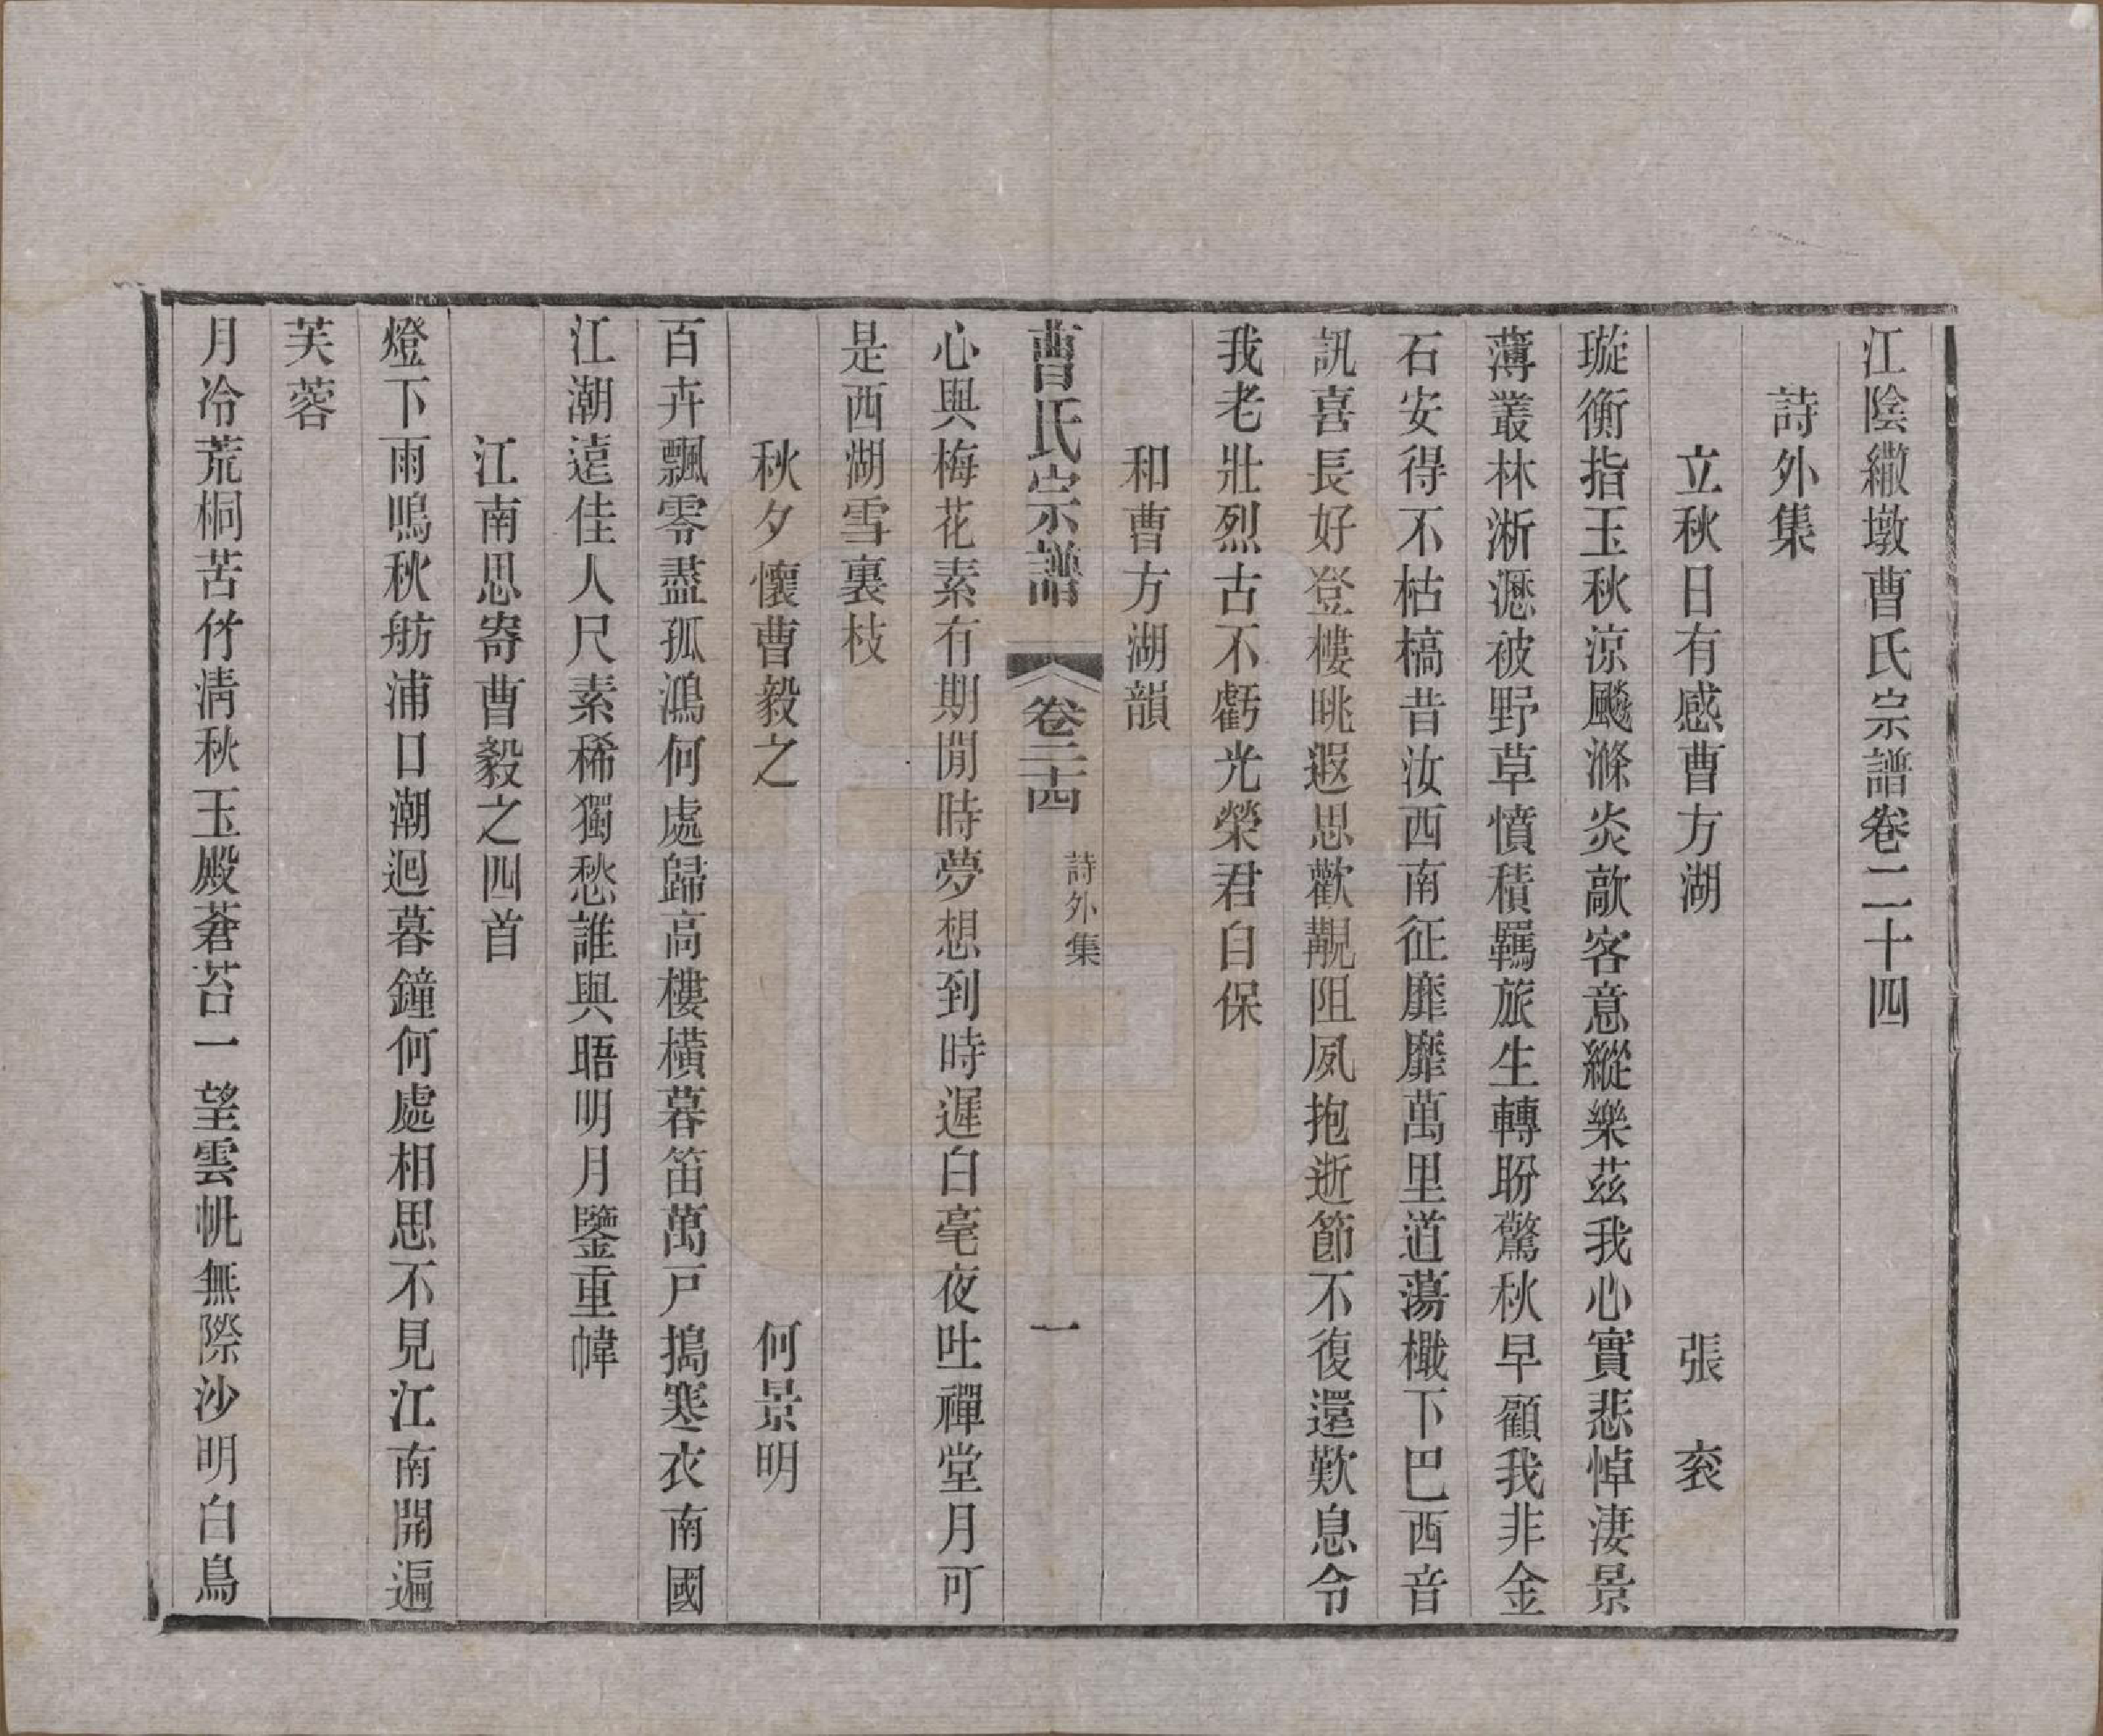 江陰繖墩曹氏宗譜卷二十四
詩外集
立秋日有感曹方湖　張袞
璇衡指玉秋涼飈滌炎歊客意縱樂茲我心實悲悼淒景
薄叢林淅瀝被野草憤積羈旅生轉盼驚秋早顧我非金
石安得不枯槁昔汝西南征靡靡萬里道蕩檝下巴西音
訊喜長好登樓眺遐思歡覯阻夙抱逝節不復還歎息令
我老壯烈古不虧光榮君自保
和曹方湖韻
曹氏宗譜　卷二十四　詩外集　一
心與梅花素有期閒時夢想到時遲白毫夜吐禪堂月可
是西湖雪裏枝
秋夕懷曹毅之　何景明
百卉飄零盡孤鴻何處歸高樓橫暮笛萬戸搗寒衣南國
江潮遠佳人尺素稀獨愁誰與晤明月鑒重幃
江南思寄曹毅之四首
燈下雨鳴秋舫浦口潮迴暮鐘何處相思不見江南開遍
芙蓉
月冷荒桐苦竹清秋玉殿蒼苔一望雲帆無際沙明白鳥